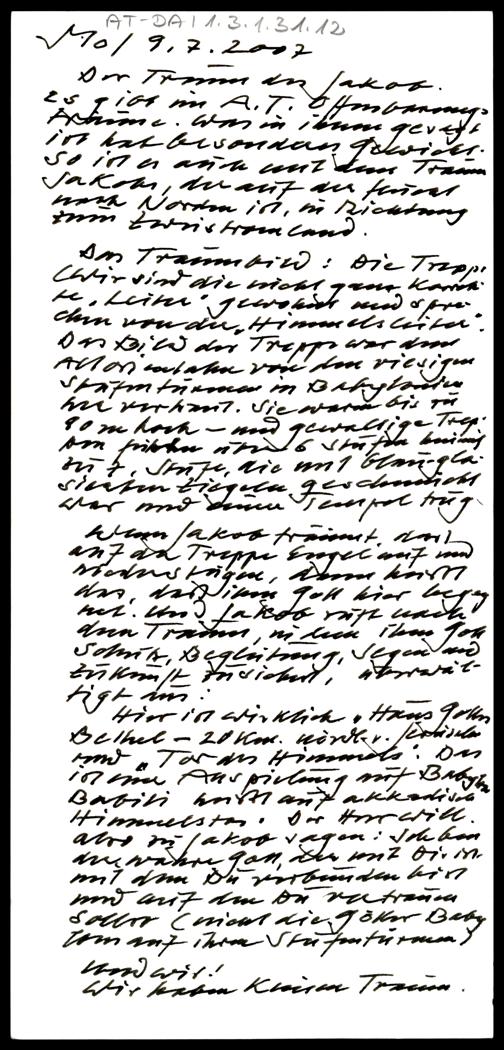 AT-DA/1.3.1.31.12
Mo/ 9.7.2007
Der Traum des Jakob.
Es gibt im A.T. Offenbarungs-
träume. Was in ihnen gesagt
ist hat besonderes Gewicht.
So ist es auch mit dem Traum
Jakobs, der auf der Flucht
nach Norden ist, in Richtung
zum Zweistromland.
Das Traumbild: Die Treppe
(Wir sind die nicht ganz korrek-
te "Leiter" gewohnt und spre-
chen von der "Himmelsleiter".
Das Bild der Treppe war dem
Alten Orient von den riesigen
Stufentürmen in Babylonien
her vertraut. Sie waren bis zu
90 m hoch - und gewaltige Trep-
pen führten über 6 Stufen hinauf
zur 7. Stufe, die mit blaugla-
sierten Ziegeln geschmückt
war und einen Tempel trug
Wenn Jakob träumt, dass
auf der Treppe Engel auf und
niedersteigen, dann heißt
das, daß ihm Gott hier begeg-
net. Und Jakob ruft nach
dem Traum, in dem ihm Gott
Schutz, Begleitung, Segen und
Zukunft zusichert, überwäl-
tigt aus:
Hier ist wirklich "Haus Gottes
Bethel - 20 km. nördl. v. Jerusalem
und "Tor des Himmels". Das
ist eine Anspielung auf Babylon
Babili heißt auf akkadisch
Himmelstor. Der Herr will
also zu Jakob sagen: Ich bin
der wahre Gott, der mit Dir ist
mit dem Du verbunden bist
und auf den Du vertrauen
sollst (nicht die Götter Baby-
lons auf ihren Stufentürmen)
Und wir!
Wir haben keinen Traum.